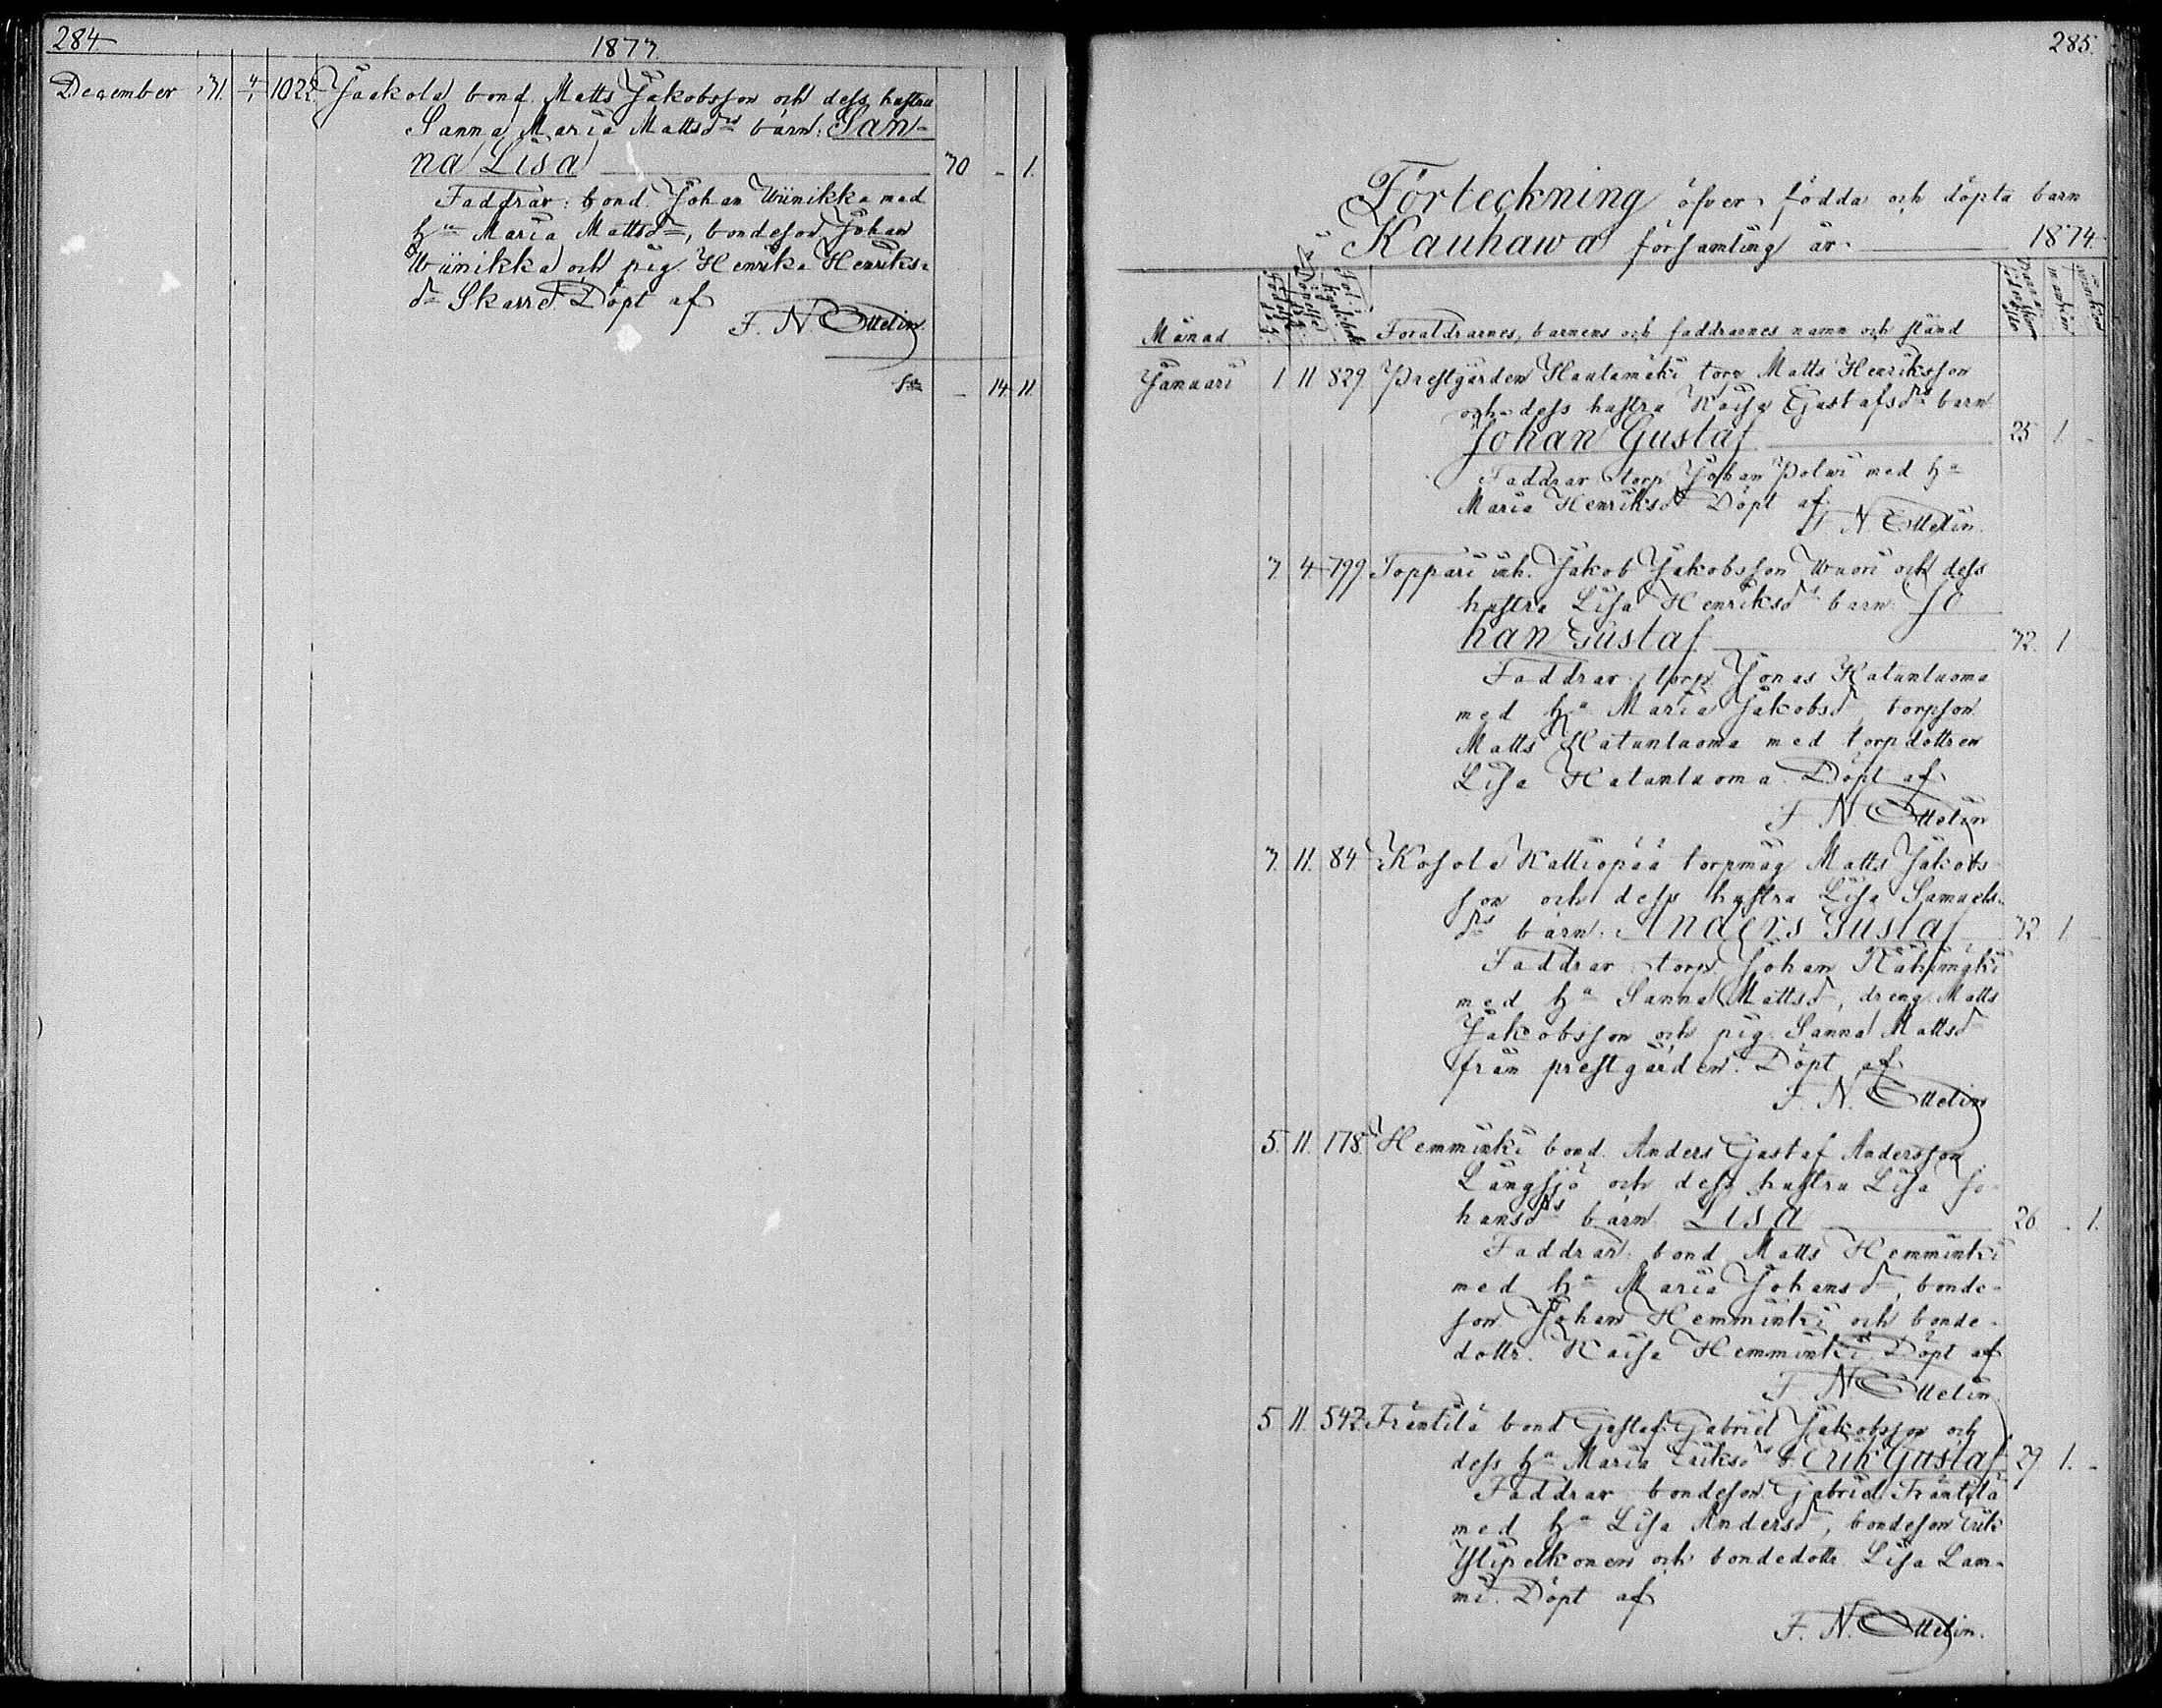 284.
1873.
December 31. 4/1 1022. Jaakola bond. Matts Jakobsson och dess hustru
Sanna Maria Mattsdrs barn: San-
na Lisa 30 - 1.
Faddrar: bond. Johan Wiinikka med
hu Maria Mattsdr, bondeson Johan
Wiinikka och pig. Henrika Henriks-
dr Skarre. Döpt af
F. N. Ottelin.
Sm - 14. 11.
285.
Förteckning öfver födda och döpta barn
Kauhawa församling år 1874.
Månad Föräldrarnes, barnens och faddrarnes namn och stånd
Januari 1 11 829 Prestgården Hautamäki torp. Matts Henriksson
och dess hustru Kaisa Gustafsdrs barn
Johan Gustaf 25 1 -
Faddrar torp. Johan Polwi med hu
Maria Henriksdr Döpt af
F. N. Ottelin.
3. 4. 799 Toppari inh. Jakob Jakobsson Wuori och dess
hustru Lisa Henriksdrs barn Jo
han Gustaf 32. 1
Faddrar: torp. Jonas Katanluoma
med hu Maria Jakobsdr, torpson
Matts Katanluoma med torpdottren
Lisa Katanluoma. Döpt af
F. N. Ottelin
3. 11. 84. Kosola Kalliopää torpmåg Matts Jakobs
son och dess hustru Lisa Samuels-
drs barn: Anders Gustaf 32 1 -
Faddrar torp. Johan
med hu Sanna Mattsdr, dreng Matts
Jakobsson och pig. Sanna Mattsdr
från prestgården. Döpt af
F. N. Ottelin
5. 11. 178. Hemminki bond. Anders Gustaf Andersson
Långsjö och dess hustru Lisa Jo-
hansdrs barn Lisa 26 - 1.
Faddrar: bond Matts Hemminki
med hu Maria Johansdr, bonde-
son Johan Hemminki och bonde-
dottr. Kaisa Hemminki. Döpt af
F. N. Ottelin
5 11. 542. Fräntilä bond Gustaf Gabriel Jakobsson och
dess hu Maria Eriksdrs b. Erik Gustaf 29 1. -
Faddrar bondeson Gabriel Fräntilä
med hu Lisa Andersdr, bondeson Erik
Ylipelkonen och bondedottr Lisa Lam-
mi. Döpt af
F. N. Ottelin.